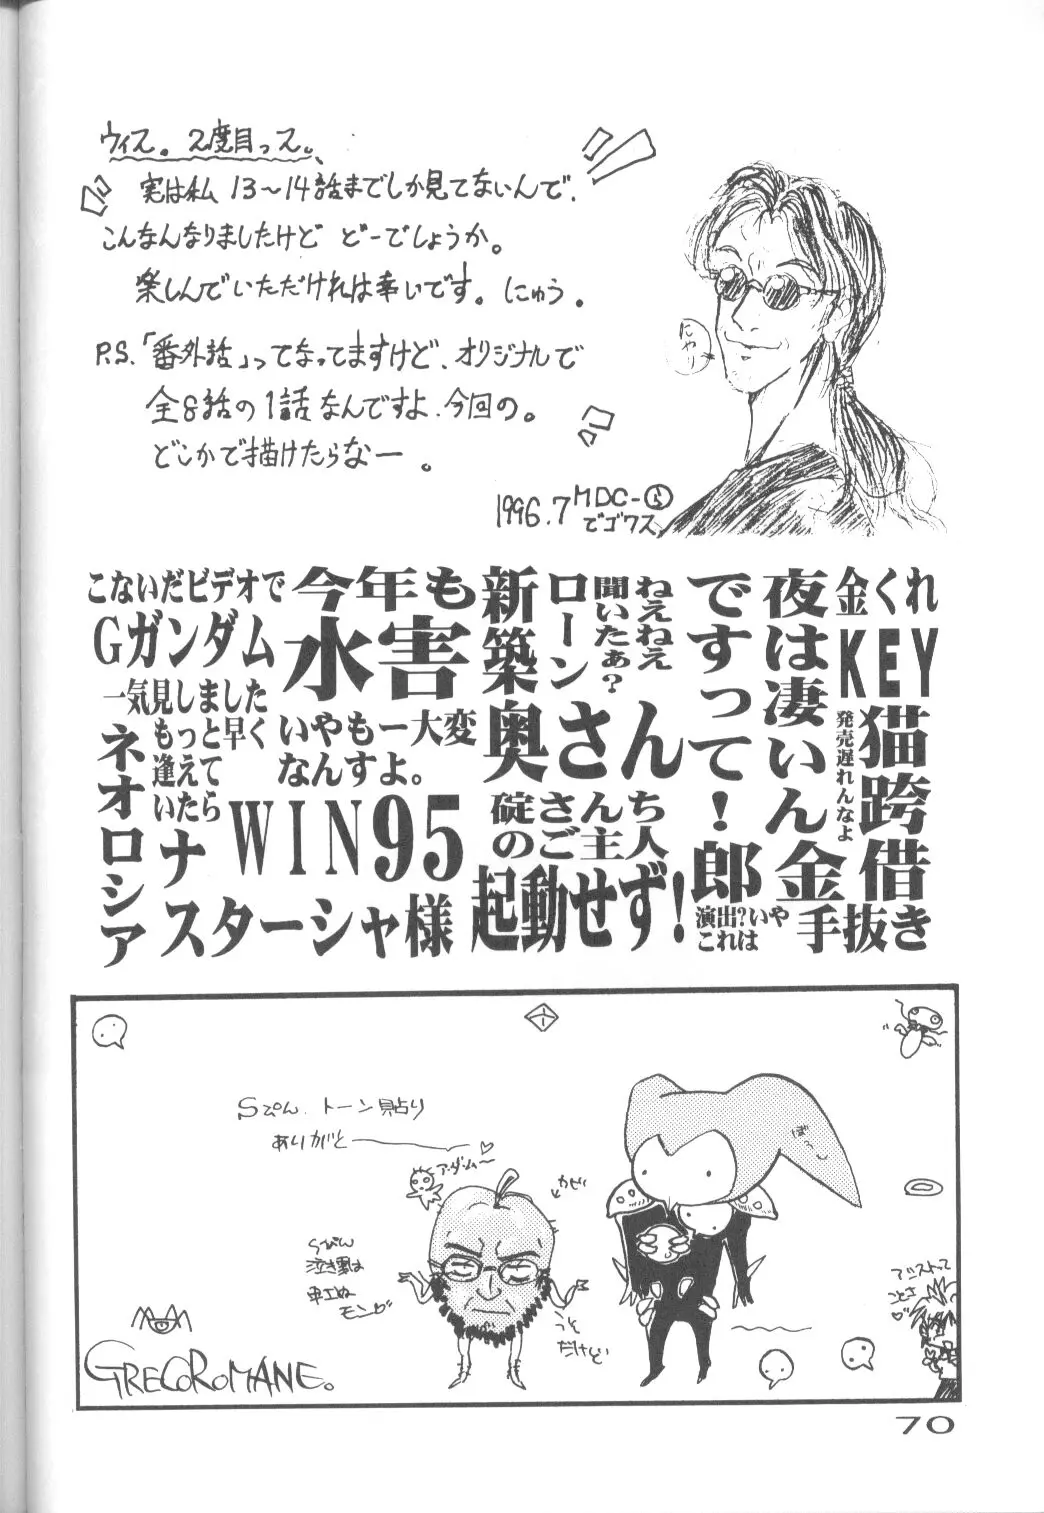 ウィス。2度目っス。
実は私 13～14話までしか見てないんで、
こんなんなりましたけど どーでしょうか。
楽しんでいただければ幸いです。にゅう。
P.S.「番外話」ってなってますけど、オリジナルで
全8話の1話なんですよ、今回の。
どこかで描けたらなー。
1996.7 MDC-
でゴワス
にやり
金くれ
KEY
発売遅れんなよ
猫跨借金
手抜き
夜は凄いん
ですって！
郎
演出?いや
これは
ねえねえ
聞いたぁ?
新築
ローン
奥さん
碇さんち
のご主人
起動せず!
今年も
水害
いやもー大変
なんすよ。
WIN95
こないだビデオで
Gガンダム
一気見しました
もっと早く
逢えて
いたら
ネオロシア
ナスターシャ様
Sぴん、トーン貼り
ありがとー
アダム〜
かぜい
Sぴん
うそ
だけど
ぼへ〜
アシストって
ことさ
GRECOROMANE。
70